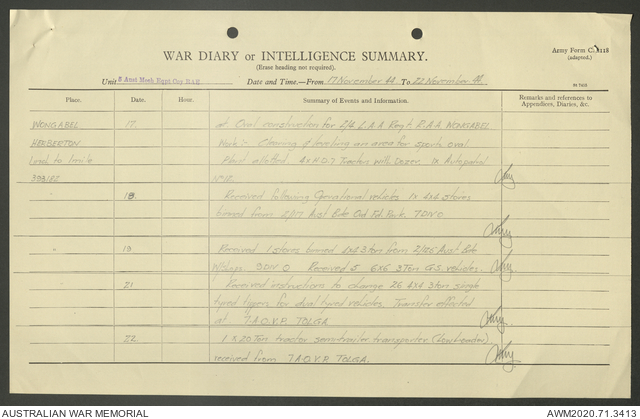 Army Form C. 2118
(adapted.)
WAR DIARY or INTELLIGENCE SUMMARY.
(Erase heading not required).
Unit 8 Aust Mech Eqpt Coy R.A.E. Date and Time.—From 17 November 44 To 22 November 44.
Place. Date. Hour. Summary of Events and Information. Remarks and references to Appendices, Diaries, &c.
WONGABEL 17. at Oval construction for 2/4 L.A.A Regt R.A.A WONGABEL
HERBERTON Work:- Clearing & levelling an area for sports oval
Lond to 1mile Plant allotted. 4 x H.D.7 Tractors with dozer. 1x Autopatrol
393182 No 12.
18. Received following Operational vehicles 1x 4x4 stores
binned from 2/17 Aust Bde Ord Fd. Park. 7DIV O
19. Received 1 stores binned 4x4 3 ton from 2/26 Aust Bde
9DIV O Received 5 6x6 3 Ton G.S. vehicles.
21 Received instructions to change 26 4x4 3 ton single
tyred tipers for dual tyred vehicles. Transfer effected
at 7 A.O.V.P. TOLGA
22 1 x 20 Ton tractor semi-trailer transporter (Low Loader)
received from 7 A.O.V.P. TOLGA.
AUSTRALIAN WAR MEMORIAL
AWM2020.71.3413